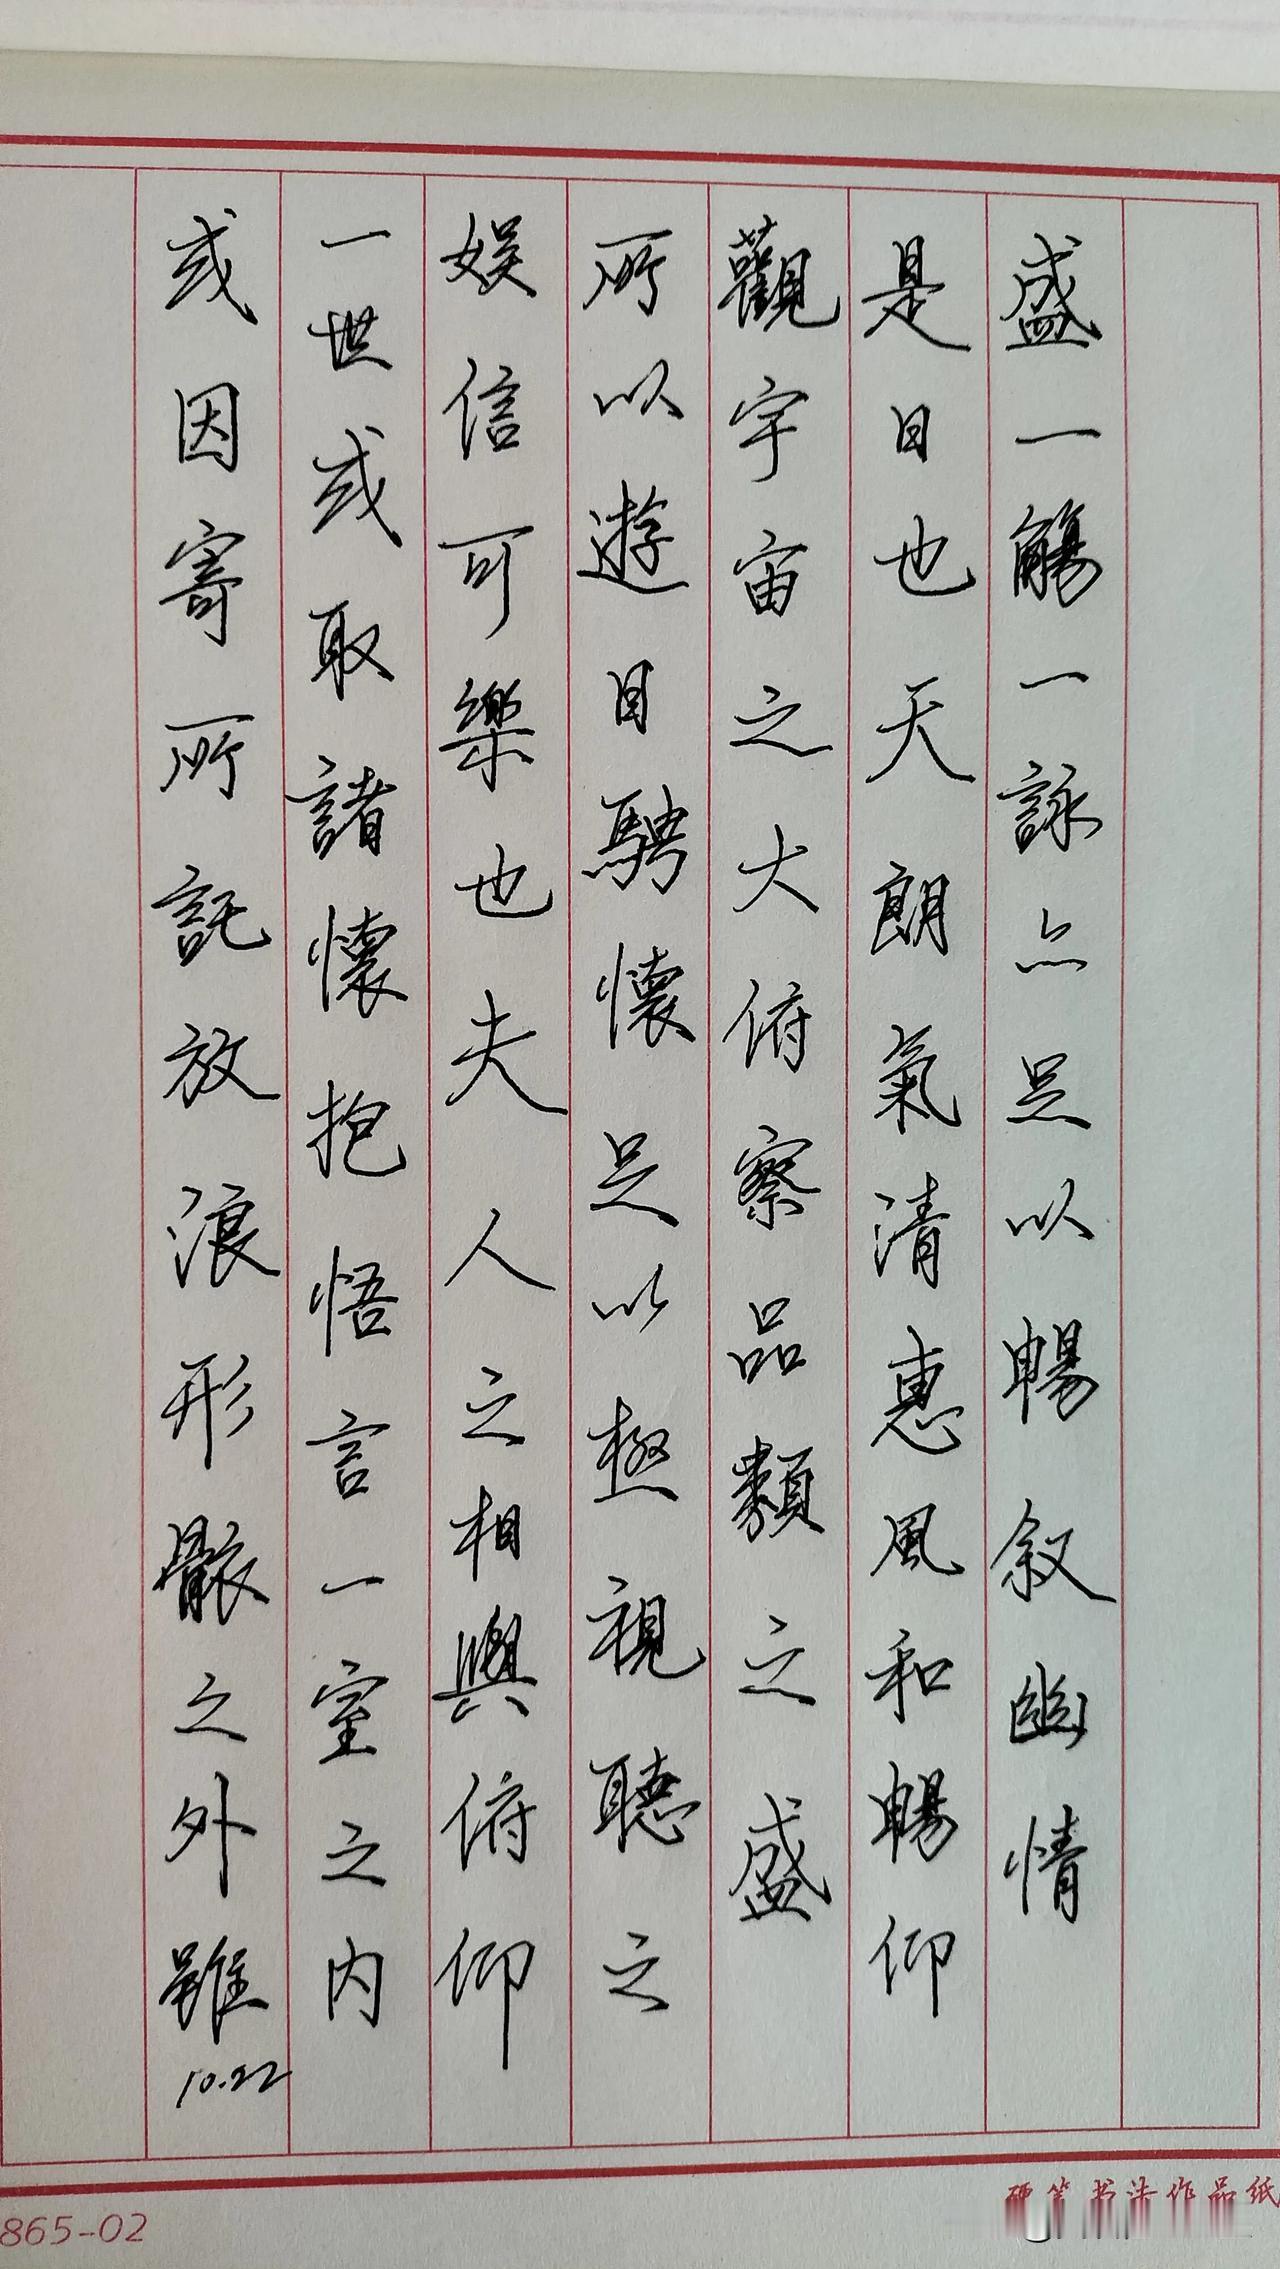 盛一觴一詠亦足以暢叙幽情
是日也天朗氣清惠風和暢仰
觀宇宙之大俯察品類之盛
所以遊目騁懷足以極視聽之
娱信可樂也夫人之相與俯仰
一世或取諸懷抱悟言一室之内
或因寄所託放浪形骸之外雖
10.22
硬笔书法作品纸
865-02